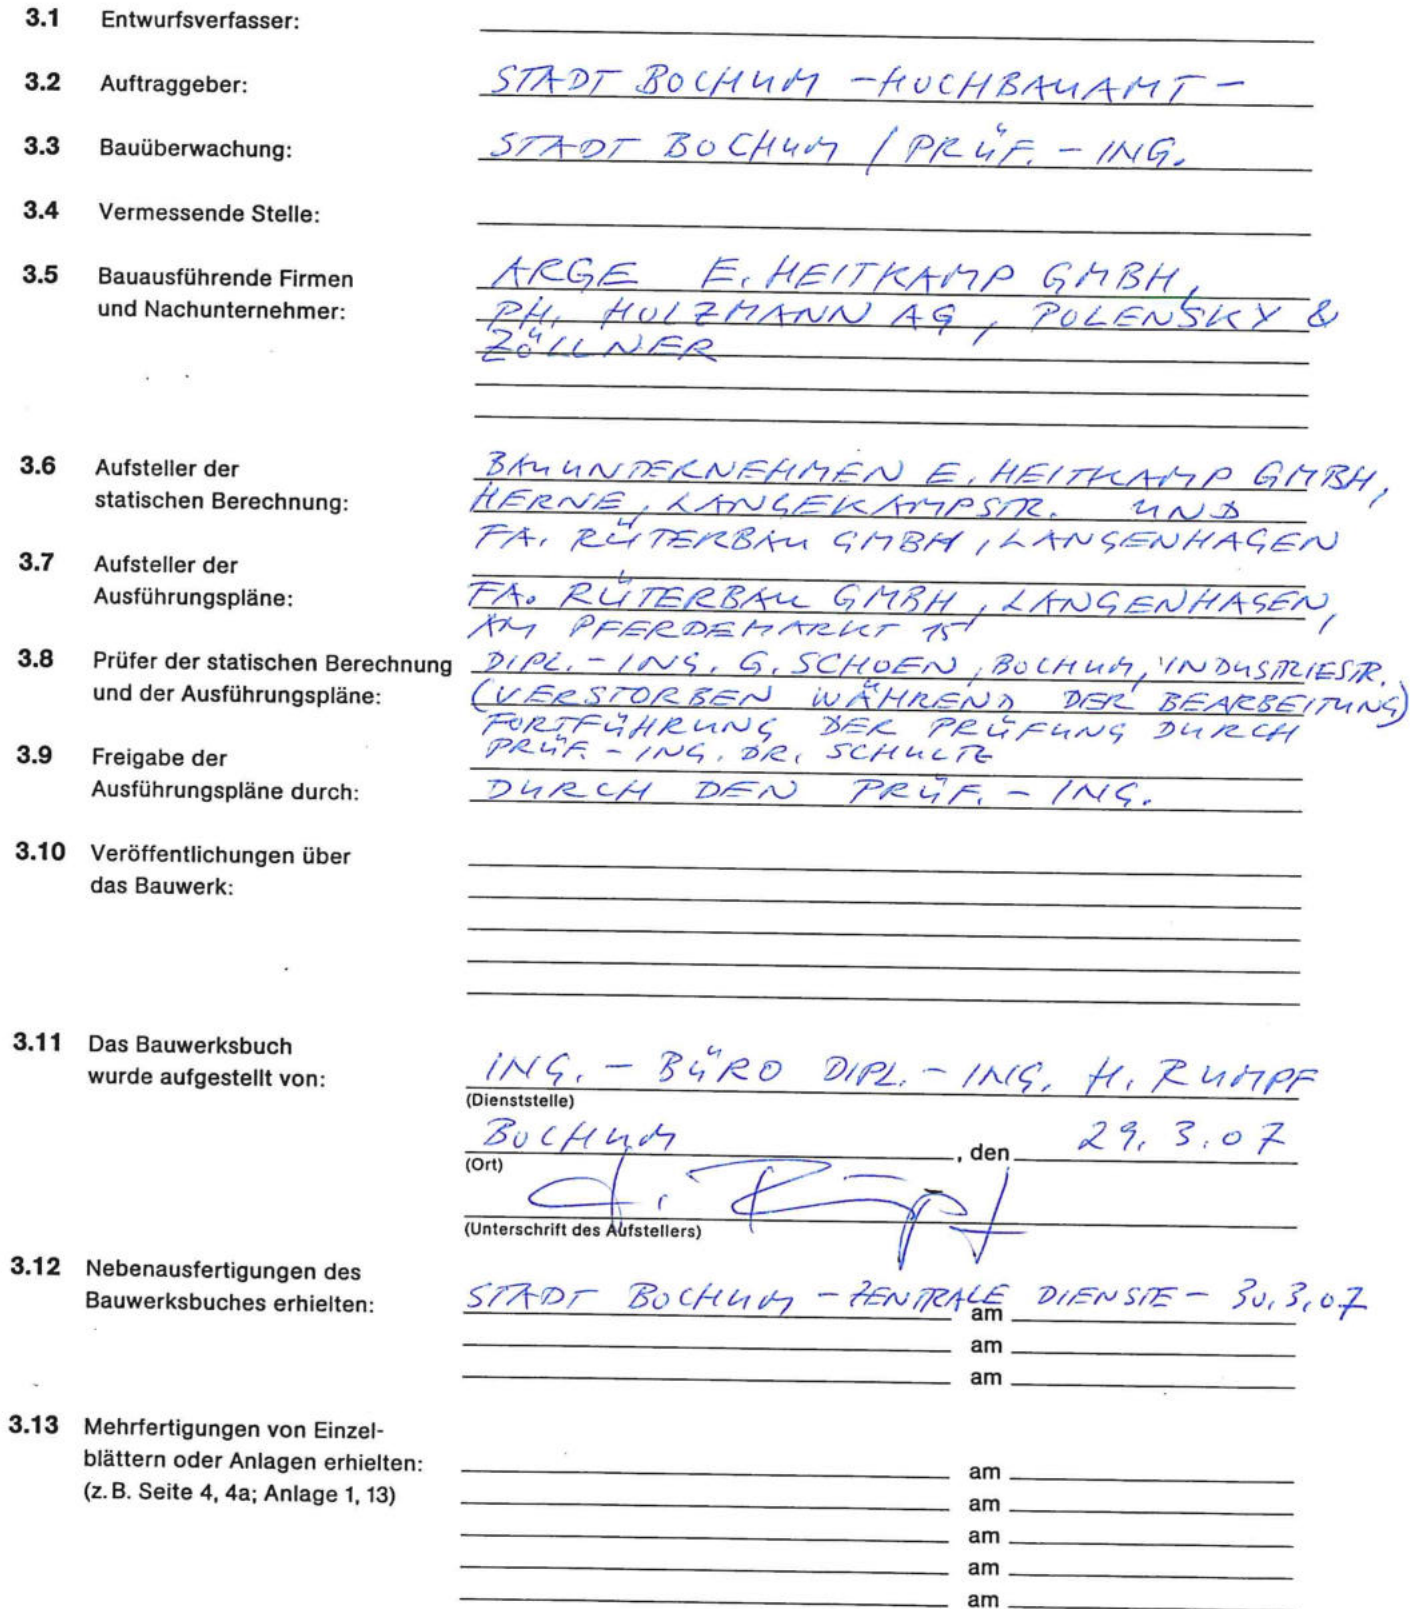 3.1 Entwurfsverfasser:
3.2 Auftraggeber: STADT BOCHUM - HOCHBAUAMT -
3.3 Bauüberwachung: STADT BOCHUM / PRÜF. - ING.
3.4 Vermessende Stelle:
3.5 Bauausführende Firmen ARGE E. HEITKAMP GMBH,
und Nachunternehmer: PH. HOLZMANN AG, POLENSKY &
ZÖLLNER
3.6 Aufsteller der BAUUNTERNEHMEN E. HEITKAMP GMBH,
statischen Berechnung: HERNE, LANGEKAMPSTR. UND
FA. RÜTERBAU GMBH, LANGENHAGEN
3.7 Aufsteller der
Ausführungspläne: FA. RÜTERBAU GMBH, LANGENHAGEN,
AM PFERDEMARKT 15
3.8 Prüfer der statischen Berechnung DIPL.-ING. G. SCHOEN, BOCHUM, INDUSTRIESTR.
und der Ausführungspläne: (VERSTORBEN WÄHREND DER BEARBEITUNG)
FORTFÜHRUNG DER PRÜFUNG DURCH
3.9 Freigabe der PRÜF. - ING. DR. SCHULTE
Ausführungspläne durch: DURCH DEN PRÜF. - ING.
3.10 Veröffentlichungen über
das Bauwerk:
3.11 Das Bauwerksbuch
wurde aufgestellt von: ING. - BÜRO DIPL. - ING. H. RUMPF
(Dienststelle)
BOCHUM , den 29.3.07
(Ort)
H. Rumpf
(Unterschrift des Aufstellers)
3.12 Nebenausfertigungen des
Bauwerksbuches erhielten: STADT BOCHUM - ZENTRALE DIENSTE - am 30.3.07
am
am
3.13 Mehrfertigungen von Einzel-
blättern oder Anlagen erhielten: am
(z. B. Seite 4, 4a; Anlage 1, 13) am
am
am
am